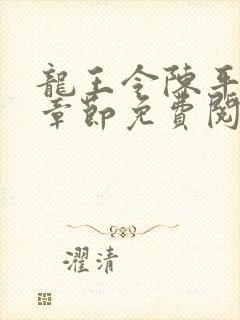 龍王令陳平
章節免費閱
濯清